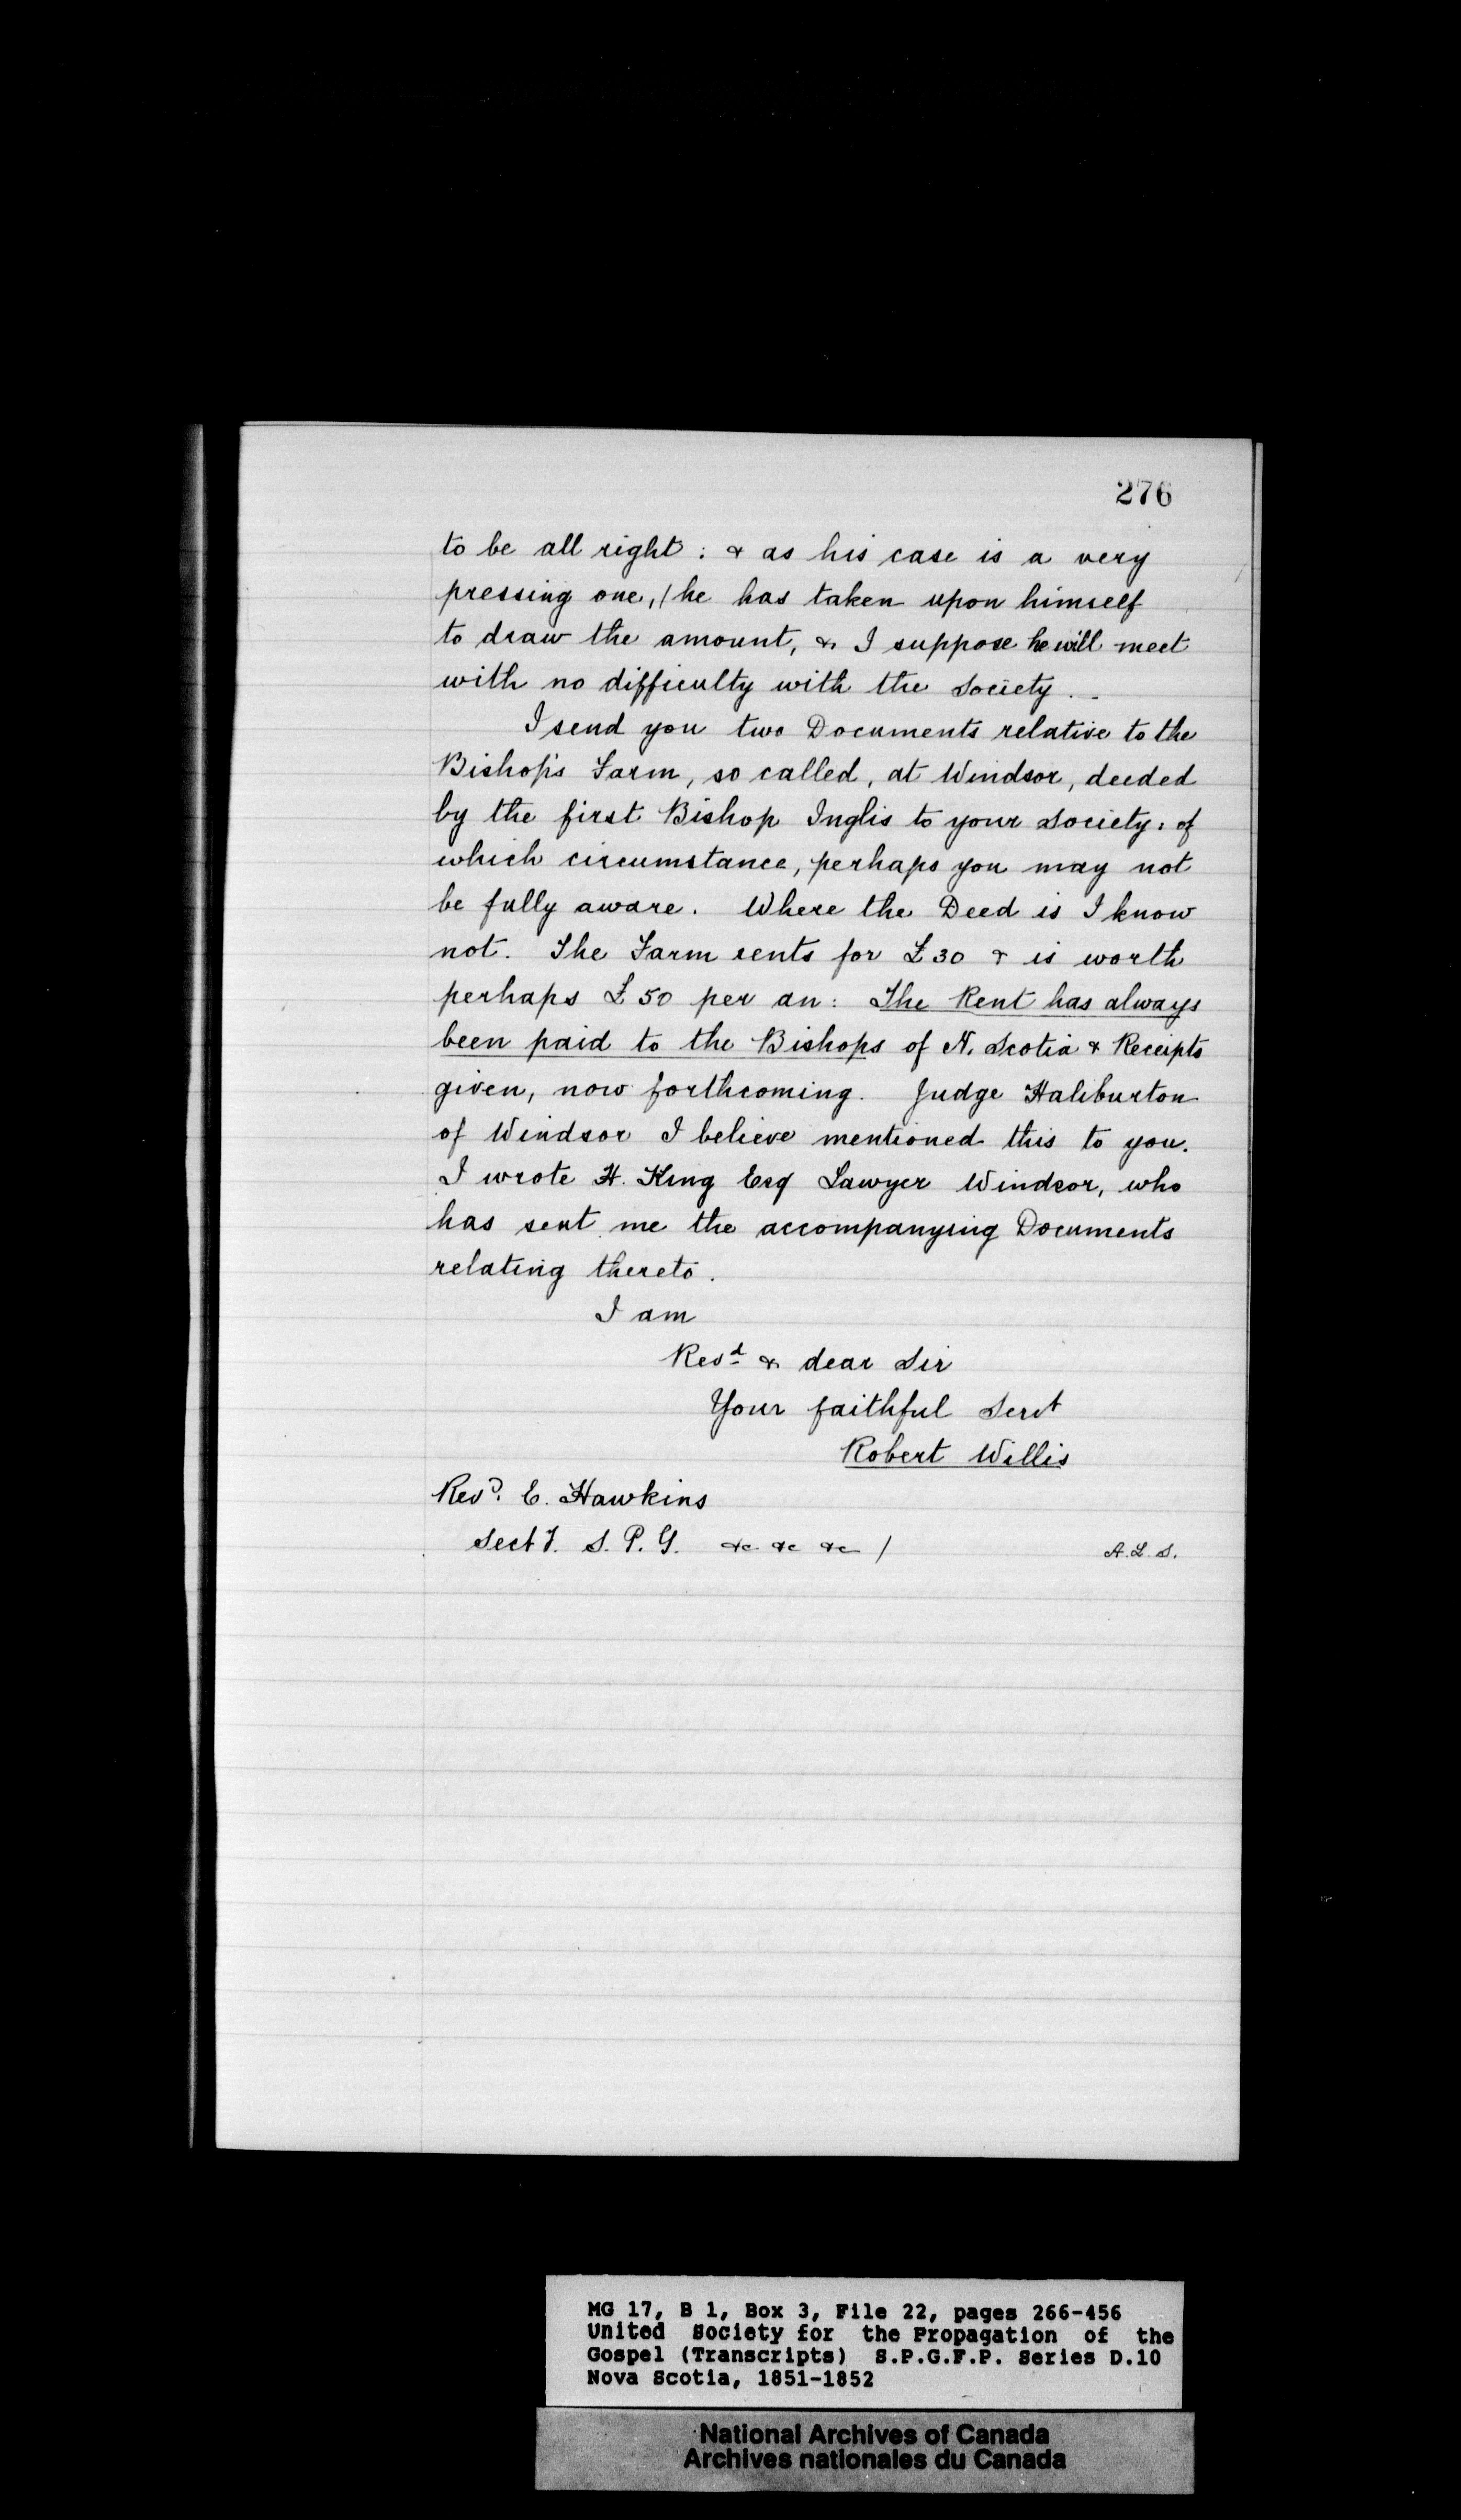 276
to be all right : & as his case is a very
pressing one, / he has taken upon himself
to draw the amount, & I suppose he will meet
with no difficulty with the Society. -
I send you two Documents relative to the
Bishop's Farm, so called, at Windsor, deeded
by the first Bishop Inglis to your Society: of
which circumstance, perhaps you may not
be fully aware. Where the Deed is I know
not. The Farm rents for £30 & is worth
perhaps £50 per an: The Rent has always
been paid to the Bishops of N. Scotia & Receipts
given, now forthcoming. Judge Haliburton
of Windsor I believe mentioned this to you.
I wrote H. King Esq Lawyer Windsor, who
has sent me the accompanying Documents
relating thereto.
I am
Revd & dear Sir
Your faithful Servt
Robert Willis
RevD. E. Hawkins
SectY. S. P. G. &c &c &c /
A. L. S.
MG 17, B 1, Box 3, File 22, pages 266-456
United Society for the Propagation of the
Gospel (Transcripts) S.P.G.F.P. Series D.10
Nova Scotia, 1851-1852
National Archives of Canada
Archives nationales du Canada